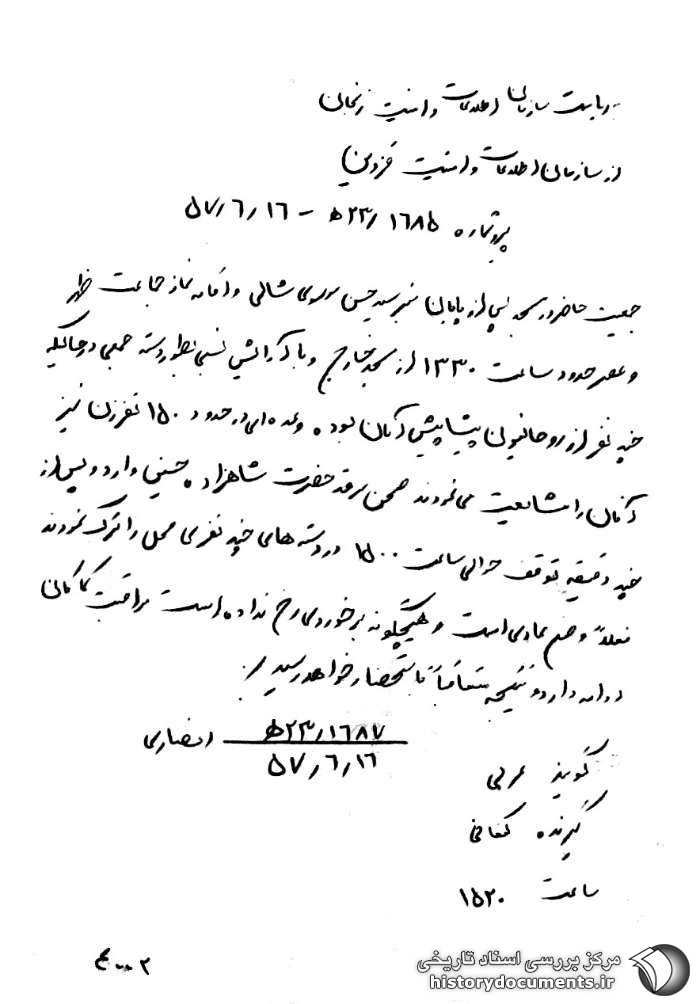 به ریاست سازمان اطلاعات و امنیت زنجان
از سازمان اطلاعات و امنیت قزوین
پیرو شماره ۲۳/۱۶۸۵ ﻫ - ۵۷/۶/۱۶
جمعیت حاضر در مسجد پس از پایان منبر سید حسن موسوی شالی و اقامه نماز جماعت ظهر
و عصر حدود ساعت ۱۳۳۰ از مسجد خارج و با آرامش نسبی بطور دسته جمعی در حالیکه
چند نفر از روحانیون پیشاپیش آنان بوده و عده‌ای در حدود ۱۵۰ نفر زن نیز
آنان را مشایعت می‌نمودند صحن مرقد حضرت شاهزاده حسینی وارد و پس از
چند دقیقه توقف حوالی ساعت ۱۵۰۰ در دسته‌های چند نفری محل را ترک نمودند
فعلاً وضع عادی است و هیچگونه برخوردی رخ نداده است مراقبت کماکان
ادامه دارد و نتیجه متعاقباً باستحضار خواهد رسید
۲۳/۱۶۸۷ ﻫ انصاری
۵۷/۶/۱۶
گوینده عربی
گیرنده
ساعت ۱۵۲۰
مرکز بررسی اسناد تاریخی
historydocuments.ir